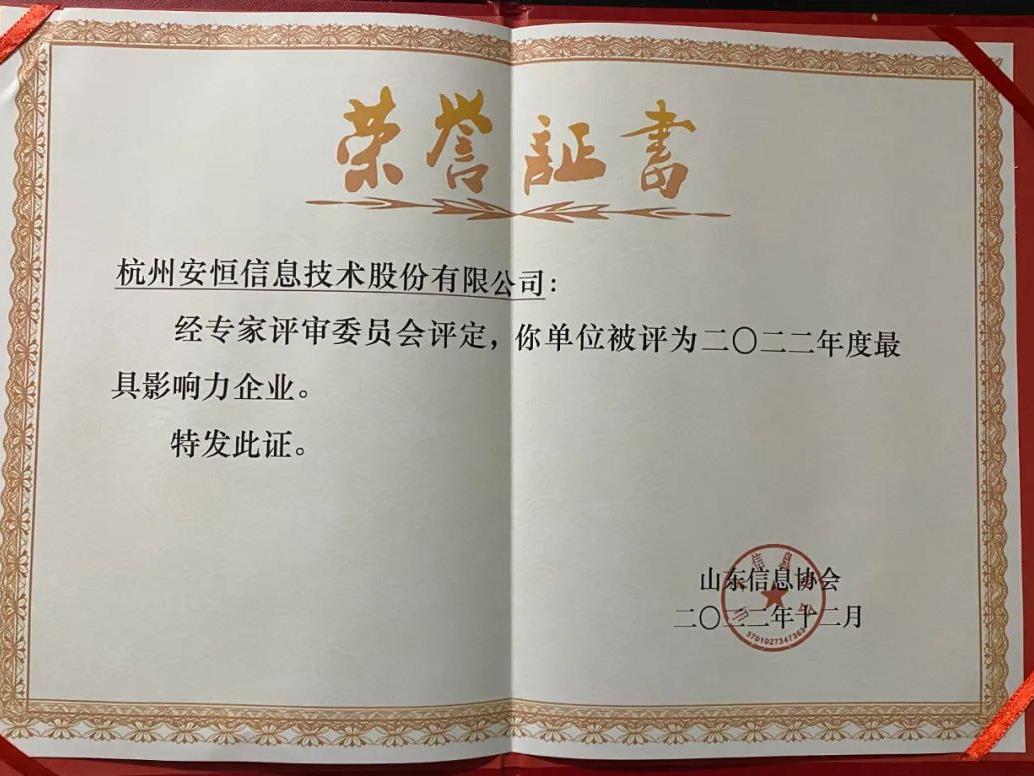 荣誉証書
杭州安恒信息技术股份有限公司：
经专家评审委员会评定，你单位被评为二〇二二年度最
具影响力企业。
特发此证。
山东信息协会
二〇二二年十二月
3701027347363